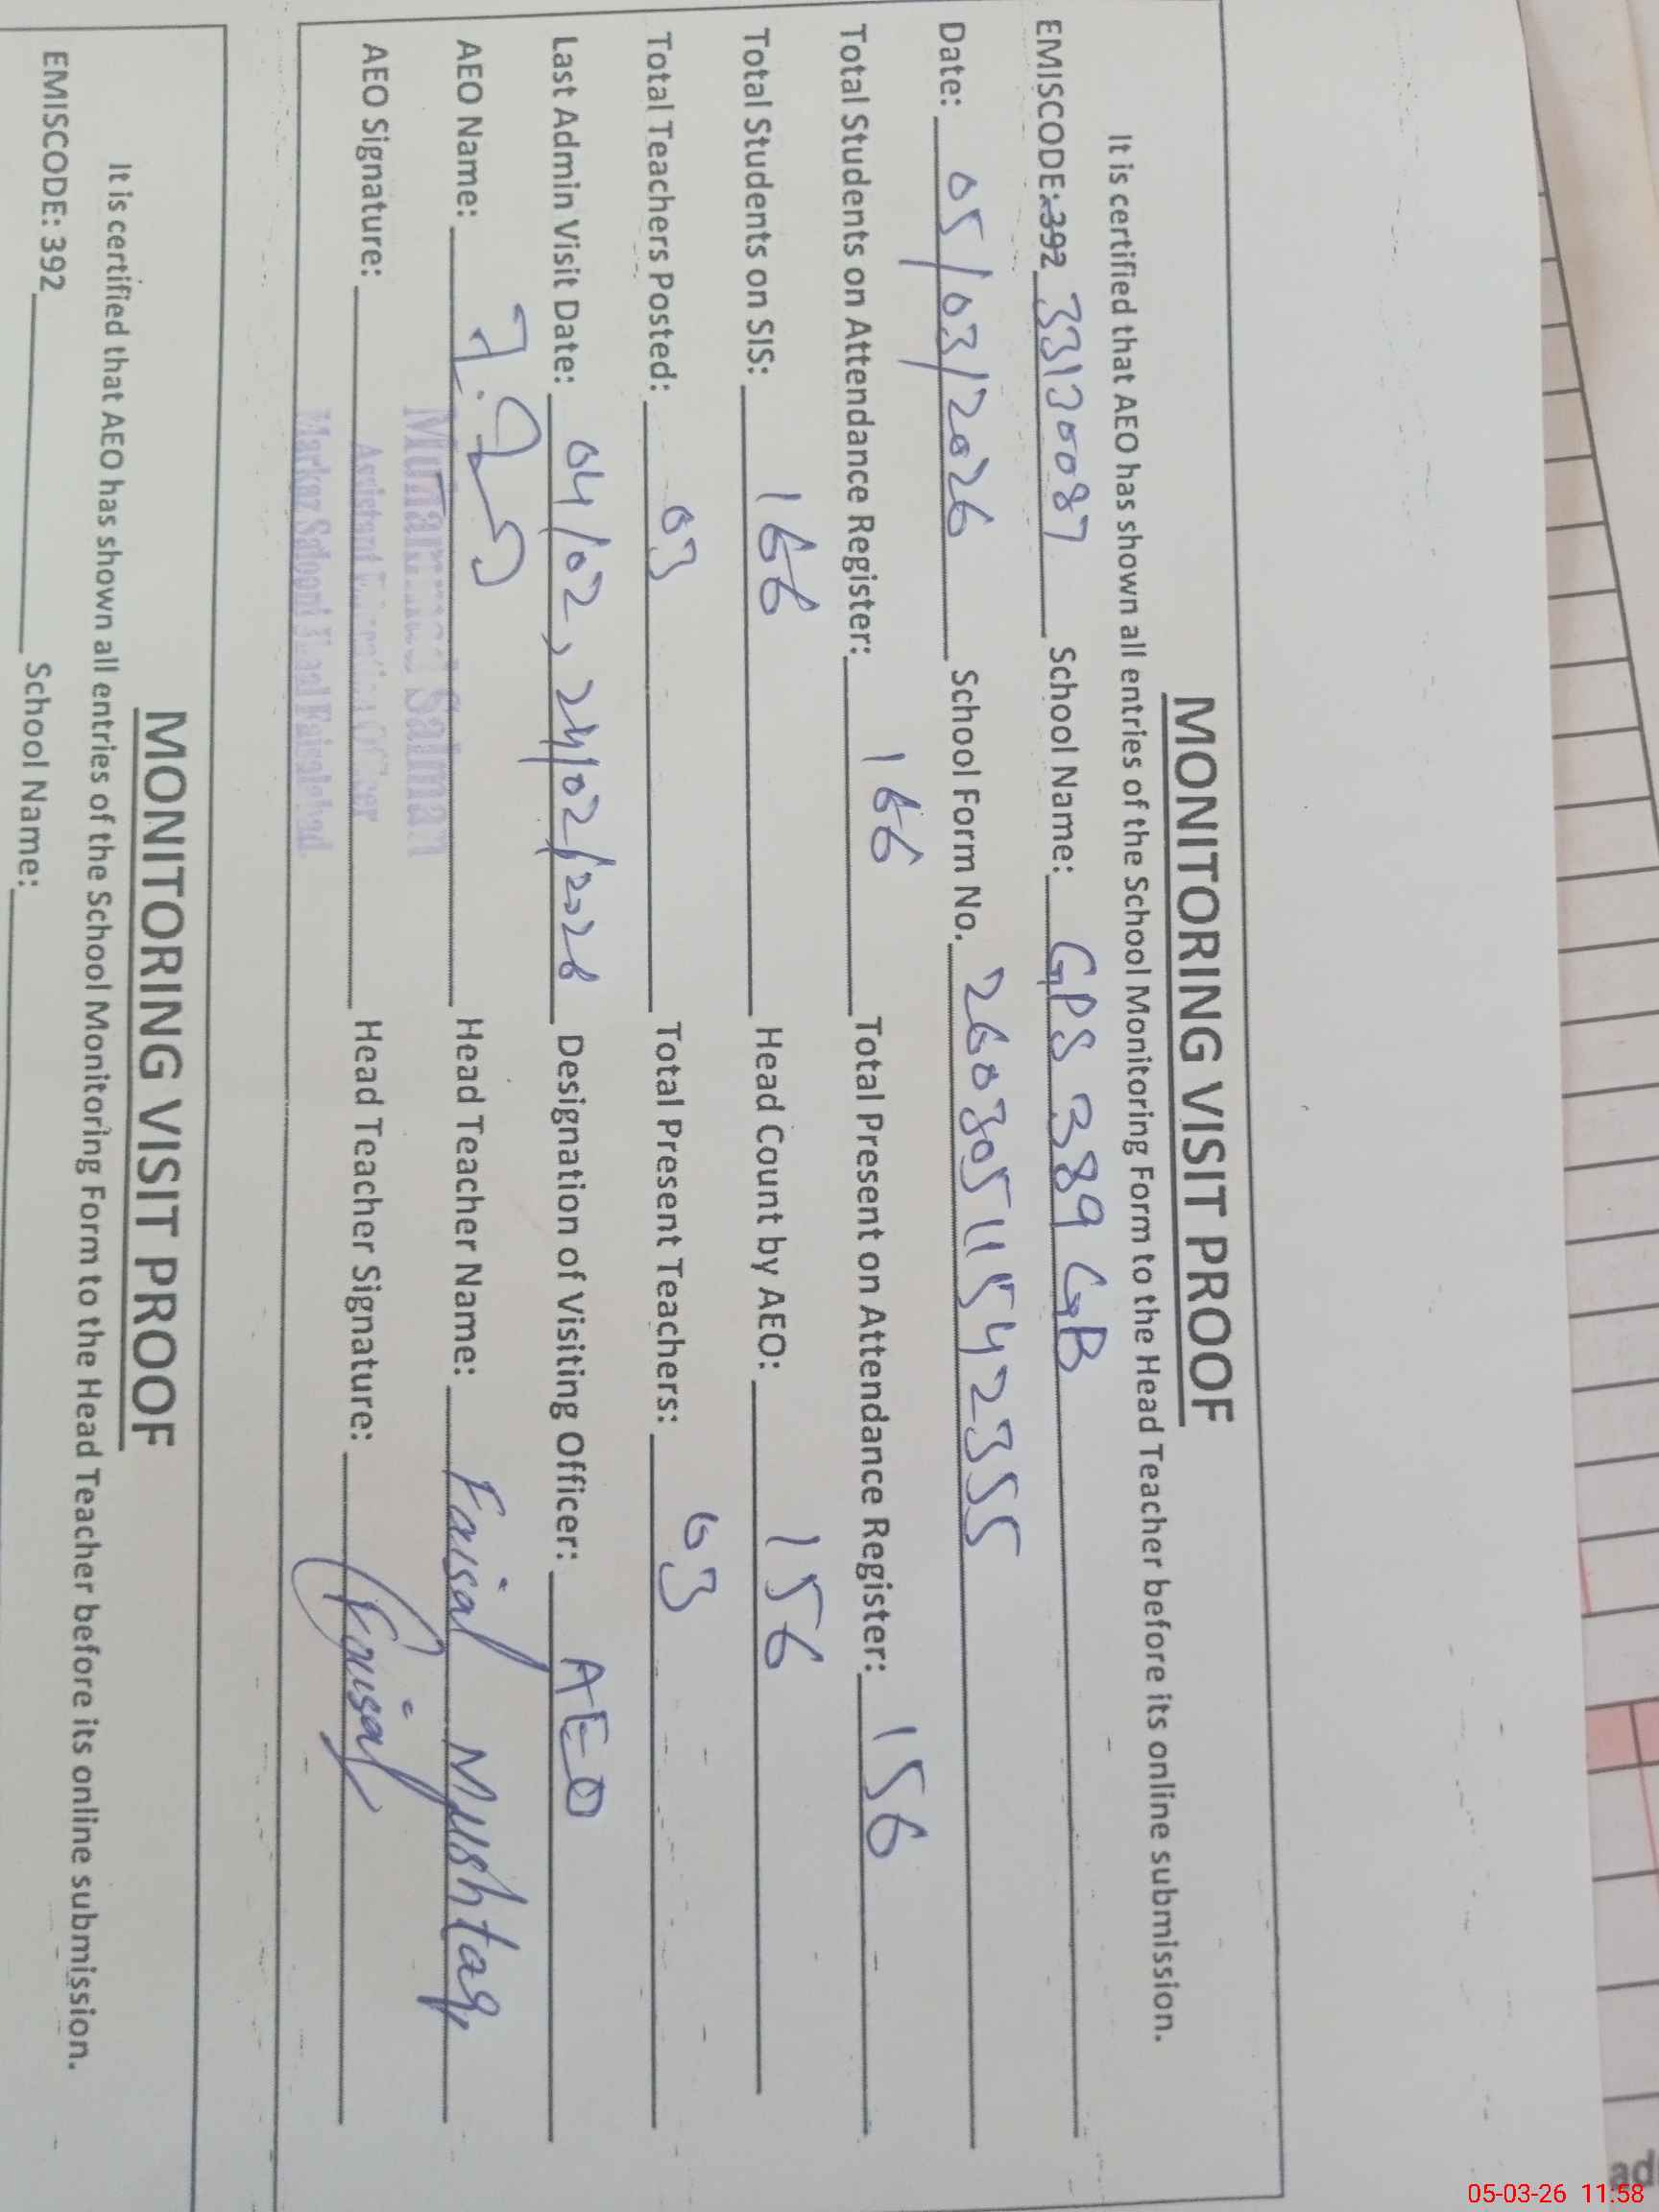 MONITORING VISIT PROOF
It is certified that AEO has shown all entries of the School Monitoring Form to the Head Teacher before its online submission.
EMISCODE: 392 33130087 School Name: GPS 389 GB
Date: 05/03/2026 School Form No. 260305115542355
Total Students on Attendance Register: 166 Total Present on Attendance Register: 156
Total Students on SIS: 166 Head Count by AEO: 156
Total Teachers Posted: 03 Total Present Teachers: 03
Last Admin Visit Date: 04/02, 24/02/2026 Designation of Visiting Officer: AEO
AEO Name: Head Teacher Name: Faisal Mushtaq
Muhammad Salman
AEO Signature: Head Teacher Signature: Faisal
Assistant Education Officer
Markaz Faisalabad.
MONITORING VISIT PROOF
It is certified that AEO has shown all entries of the School Monitoring Form to the Head Teacher before its online submission.
EMISCODE: 392 School Name:
ad
05-03-26 11:58